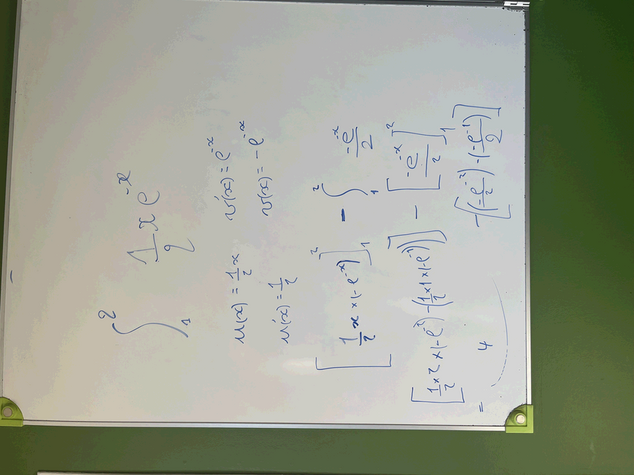 ∫₁² 1/2 x e^-x
u(x) = 1/2 x v'(x) = e^-x
u'(x) = 1/2 v(x) = -e^-x
[1/2 x × (-e^-x)]₁² - ∫₁² -e^-x/2
[1/2 × 2 × (-e^-2) - (1/2 × 1 × (-e^-1))] - [-e^-x/2]₁²
-[(-e^-2/2) - (-e^-1/2)]
= 4